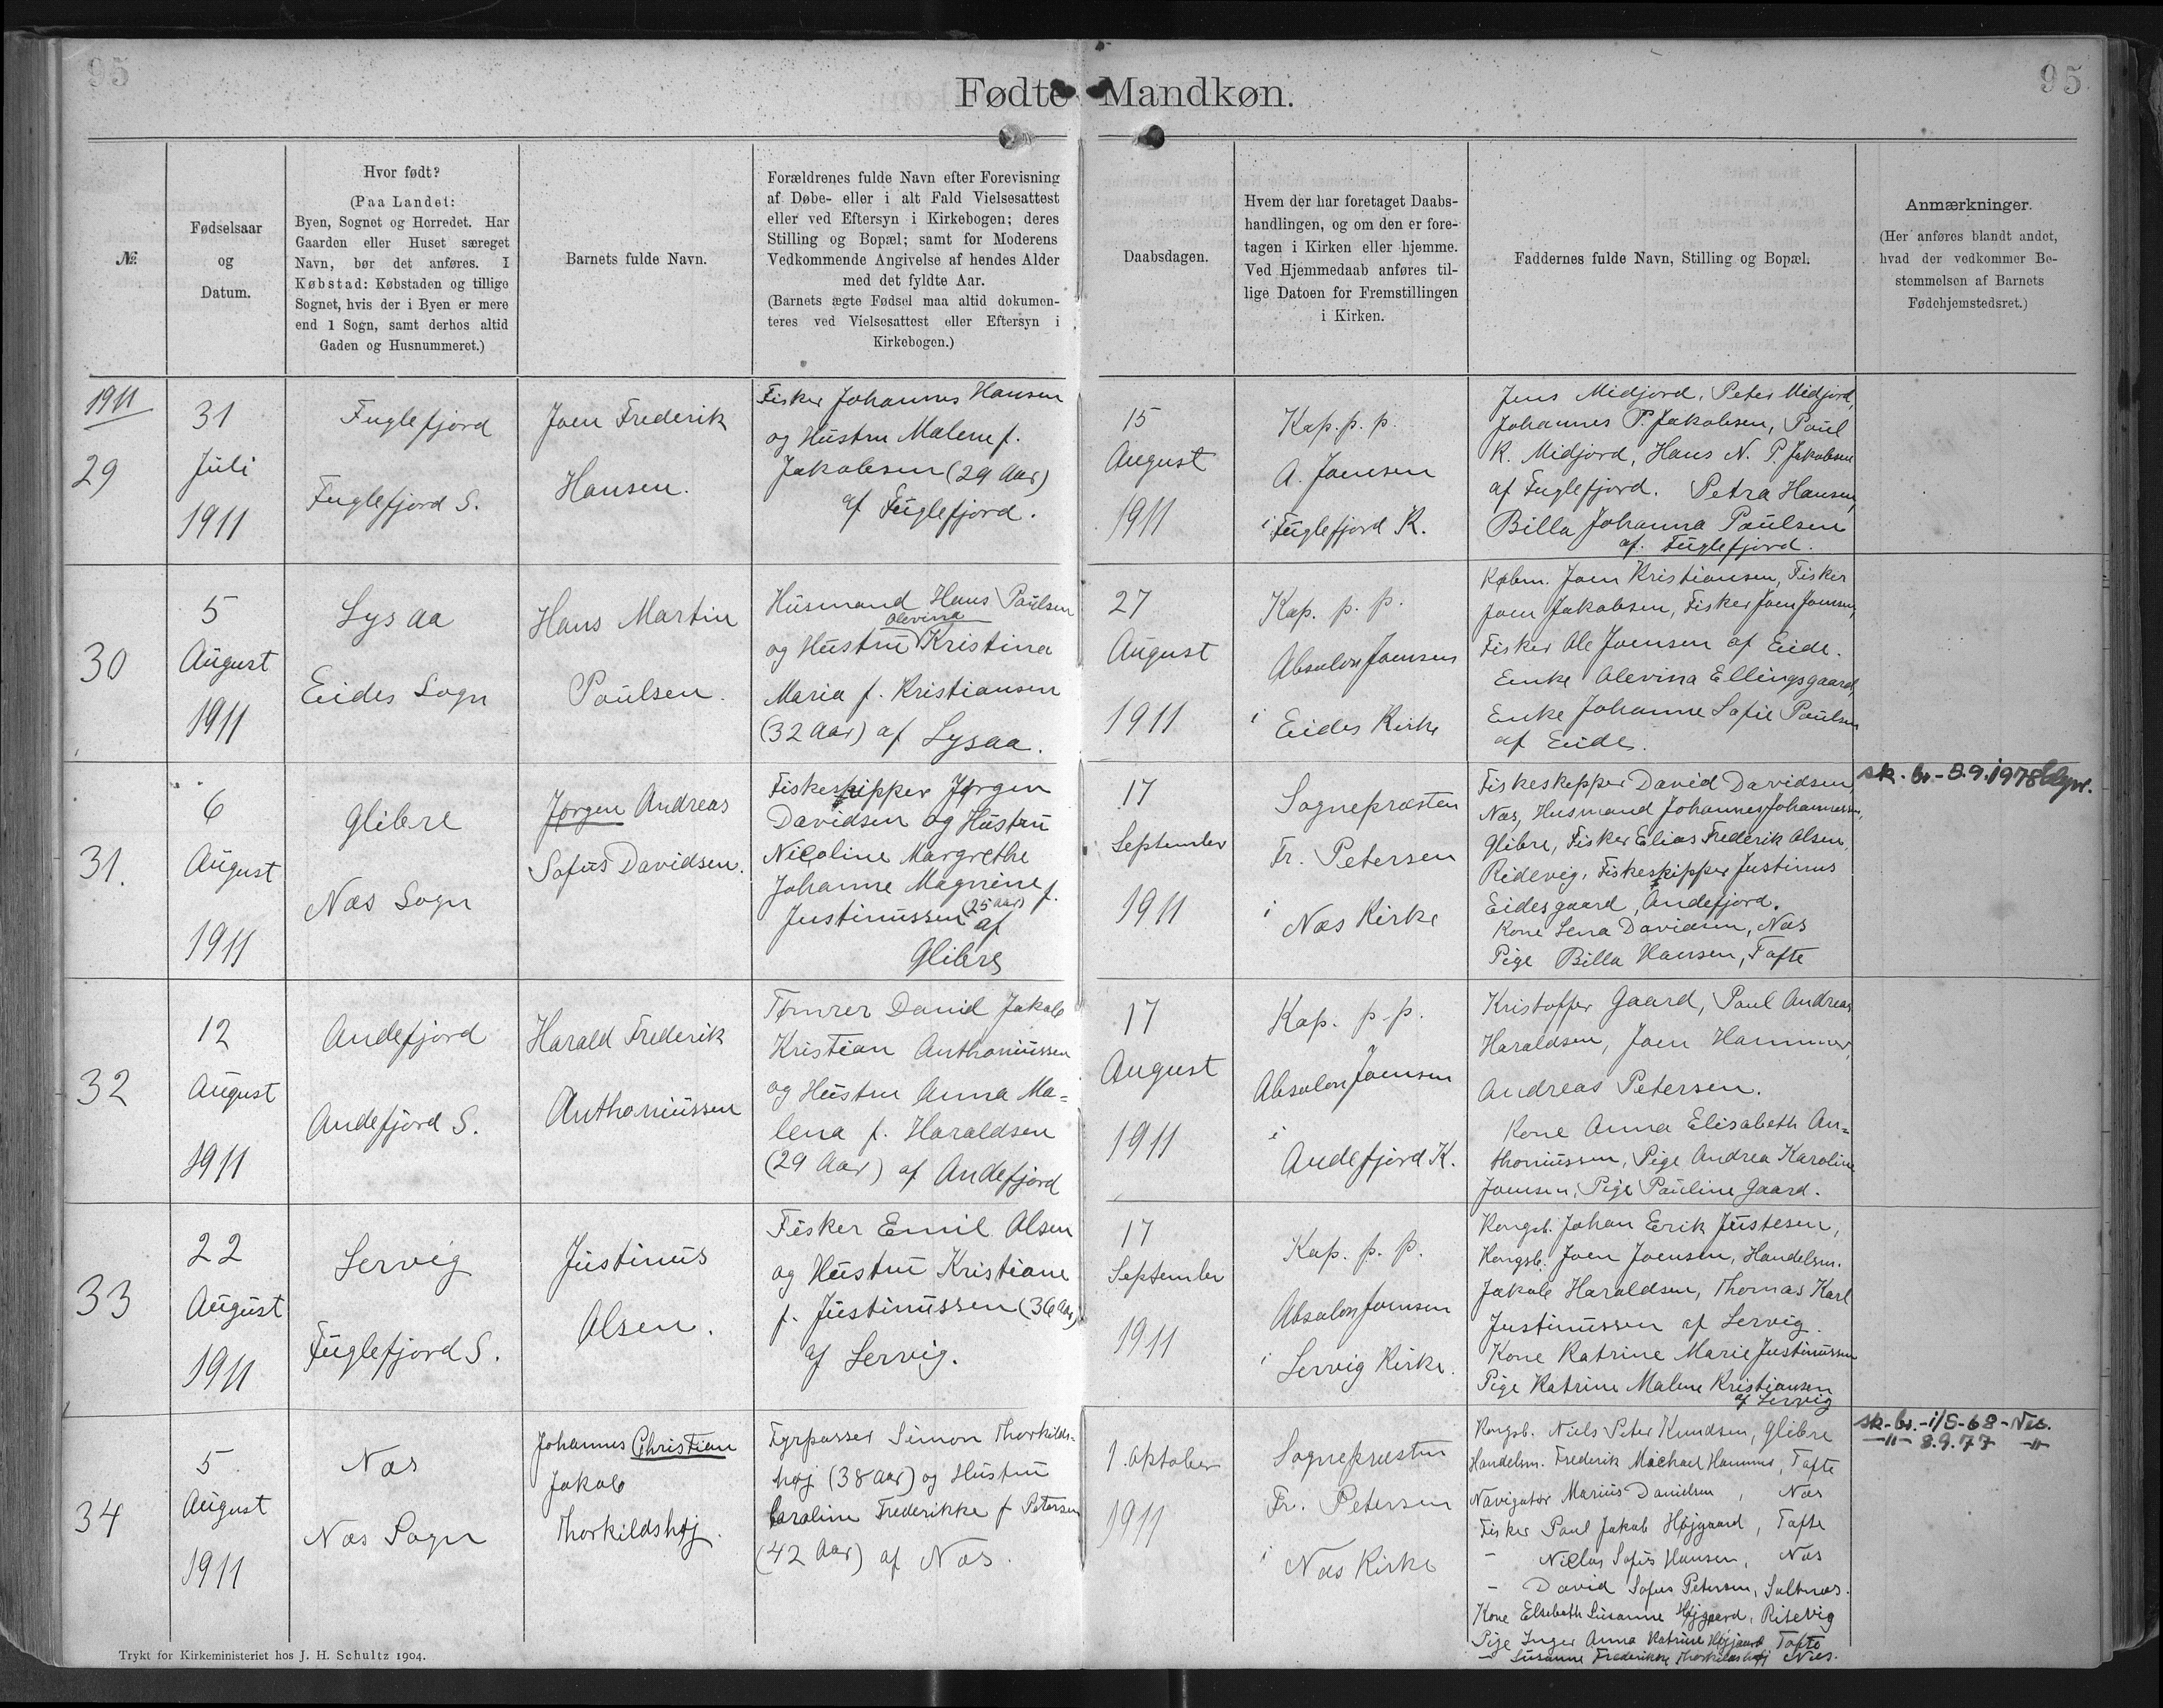 95
95
Fødte Mandkøn.
№
Fødselsaar
og
Datum.
Hvor født?
(Paa Landet:
Byen, Sognet og Herredet. Har
Gaarden eller Huset særeget
Navn, bør det anføres. I
Købstad: Købstaden og tillige
Sognet, hvis der i Byen er mere
end 1 Sogn, samt derhos altid
Gaden og Husnummeret.)
Barnets fulde Navn.
Forældrenes fulde Navn efter Forevisning
af Døbe- eller i alt Fald Vielsesattest
eller ved Eftersyn i Kirkebogen; deres
Stilling og Bopæl; samt for Moderens
Vedkommende Angivelse af hendes Alder
med det fyldte Aar.
(Barnets ægte Fødsel maa altid dokumen-
teres ved Vielsesattest eller Eftersyn i
Kirkebogen.)
Daabsdagen.
Hvem der har foretaget Daabs-
handlingen, og om den er fore-
tagen i Kirken eller hjemme.
Ved Hjemmedaab anføres til-
lige Datoen for Fremstillingen
i Kirken.
Faddernes fulde Navn, Stilling og Bopæl.
Anmærkninger.
(Her anføres blandt andet,
hvad der vedkommer Be-
stemmelsen af Barnets
Fødehjemstedsret.)
1911
29
31
Juli
1911
Fuglefjord
Fuglefjord S.
Joen Frederik
Hansen.
Fisker Johannes Hansen
og Hustru Malene f.
Jakobsen (29 Aar)
af Fuglefjord.
15
August
1911
Kap. p. p.
A. Joensen
i Fuglefjord K.
Jens Midjord, Peter Midjord,
Johannes P. Jakobsen, Poul
K. Midjord, Hans N. P. Jakobsen
af Fuglefjord. Petra Hansen,
Billa Johanna Poulsen
af. Fuglefjord.
30
5
August
1911
Lysaa
Eides Sogn
Hans Martin
Poulsen.
Husmand Hans Poulsen
Olevina
og Hustru Kristina
Maria f. Kristiansen
(32 Aar) af Lysaa.
27
August
1911
Kap. p. p.
Absalon Joensen
i Eides Kirke
Købm. Joen Kristiansen, Fisker
Joen Jakobsen, Fisker Joen Joensen,
Fisker Ole Joensen af Eide.
Enke Olevina Ellingsgaard,
Enke Johanne Sofie Poulsen
af Eide.
31.
6
August
1911
Glibre
Næs Sogn
Jørgen Andreas
Sofus Davidsen.
Fiskeskipper Jørgen
Davidsen og Hustru
Nicoline Margrethe
Johanne Magnine f.
Justinussen (25 Aar) af
Glibre
17
September
1911
Sognepræsten
Fr. Petersen
i Næs Kirke
Fiskeskipper David Davidsen,
Næs, Husmand Johannes Johannessen,
Glibre, Fisker Elias Frederik Olsen,
Ridevig, Fiskeskipper Justinus
Eidesgaard, Andefjord.
Kone Lena Davidsen, Næs
Pige Billa Hansen, Tofte
sk. br. - 8.9.1978
32
12
August
1911
Andefjord
Andefjord S.
Harald Frederik
Anthoniussen
Tømrer David Jakob
Kristian Anthoniussen
og Hustru Anna Ma=
lena f. Haraldsen
(29 Aar) af Andefjord
17
August
1911
Kap. p. p.
Absalon Joensen
i
Andefjord K.
Kristoffer Gaard, Paul Andreas
Haraldsen, Joen Hammer,
Andreas Petersen.
Kone Anna Elisabeth An=
thoniussen, Pige Andrea Karoline
Joensen, Pige Pauline Gaard.
33
22
August
1911
Lervig
Fuglefjord S.
Justinus
Olsen.
Fisker Emil Olsen
og Hustru Kristiane
f. Justinussen (36 Aar)
af Lervig.
17
September
1911
Kap. p. p.
Absalon Joensen
i Lervig Kirke.
Kongsb. Johan Erik Justesen,
Kongsb. Joen Joensen, Handelsm.
Jakob Haraldsen, Thomas Karl
Justinussen af Lervig.
Kone Katrine Marie Justinussen
Pige Katrine Malene Kristiansen
af Lervig
34
5
August
1911
Næs
Næs Sogn
Johannes Christian
Jakob
Thorkildshøj.
Fyrpasser Simon Thorkilds-
høj (38 Aar) og Hustru
Caroline Frederikke f Petersen
(42 Aar) af Næs.
1. Oktober
1911
Sognepræsten
Fr. Petersen
i Næs Kirke
Kongsb. Niels Peter Knudsen, Glibre
Handelsm. Frederik Michael Hammer, Tofte
Navigatør Marius Danielsen, Næs
Fisker Poul Jakob Højgaard, Tofte
- Niclas Sofus Hansen, Næs
- David Sofus Petersen, Saltnæs.
Kone Elsebeth Susanne Højgaard, Ritevig
Pige Inger Anna Katrine Højgaard, Tofte
- Susanne Frederikke Thorkildshøj Næs.
sk. br. - 1/8-68 -
-"- 8.9.77 -"-
Trykt for Kirkeministeriet hos J. H. Schultz 1904.